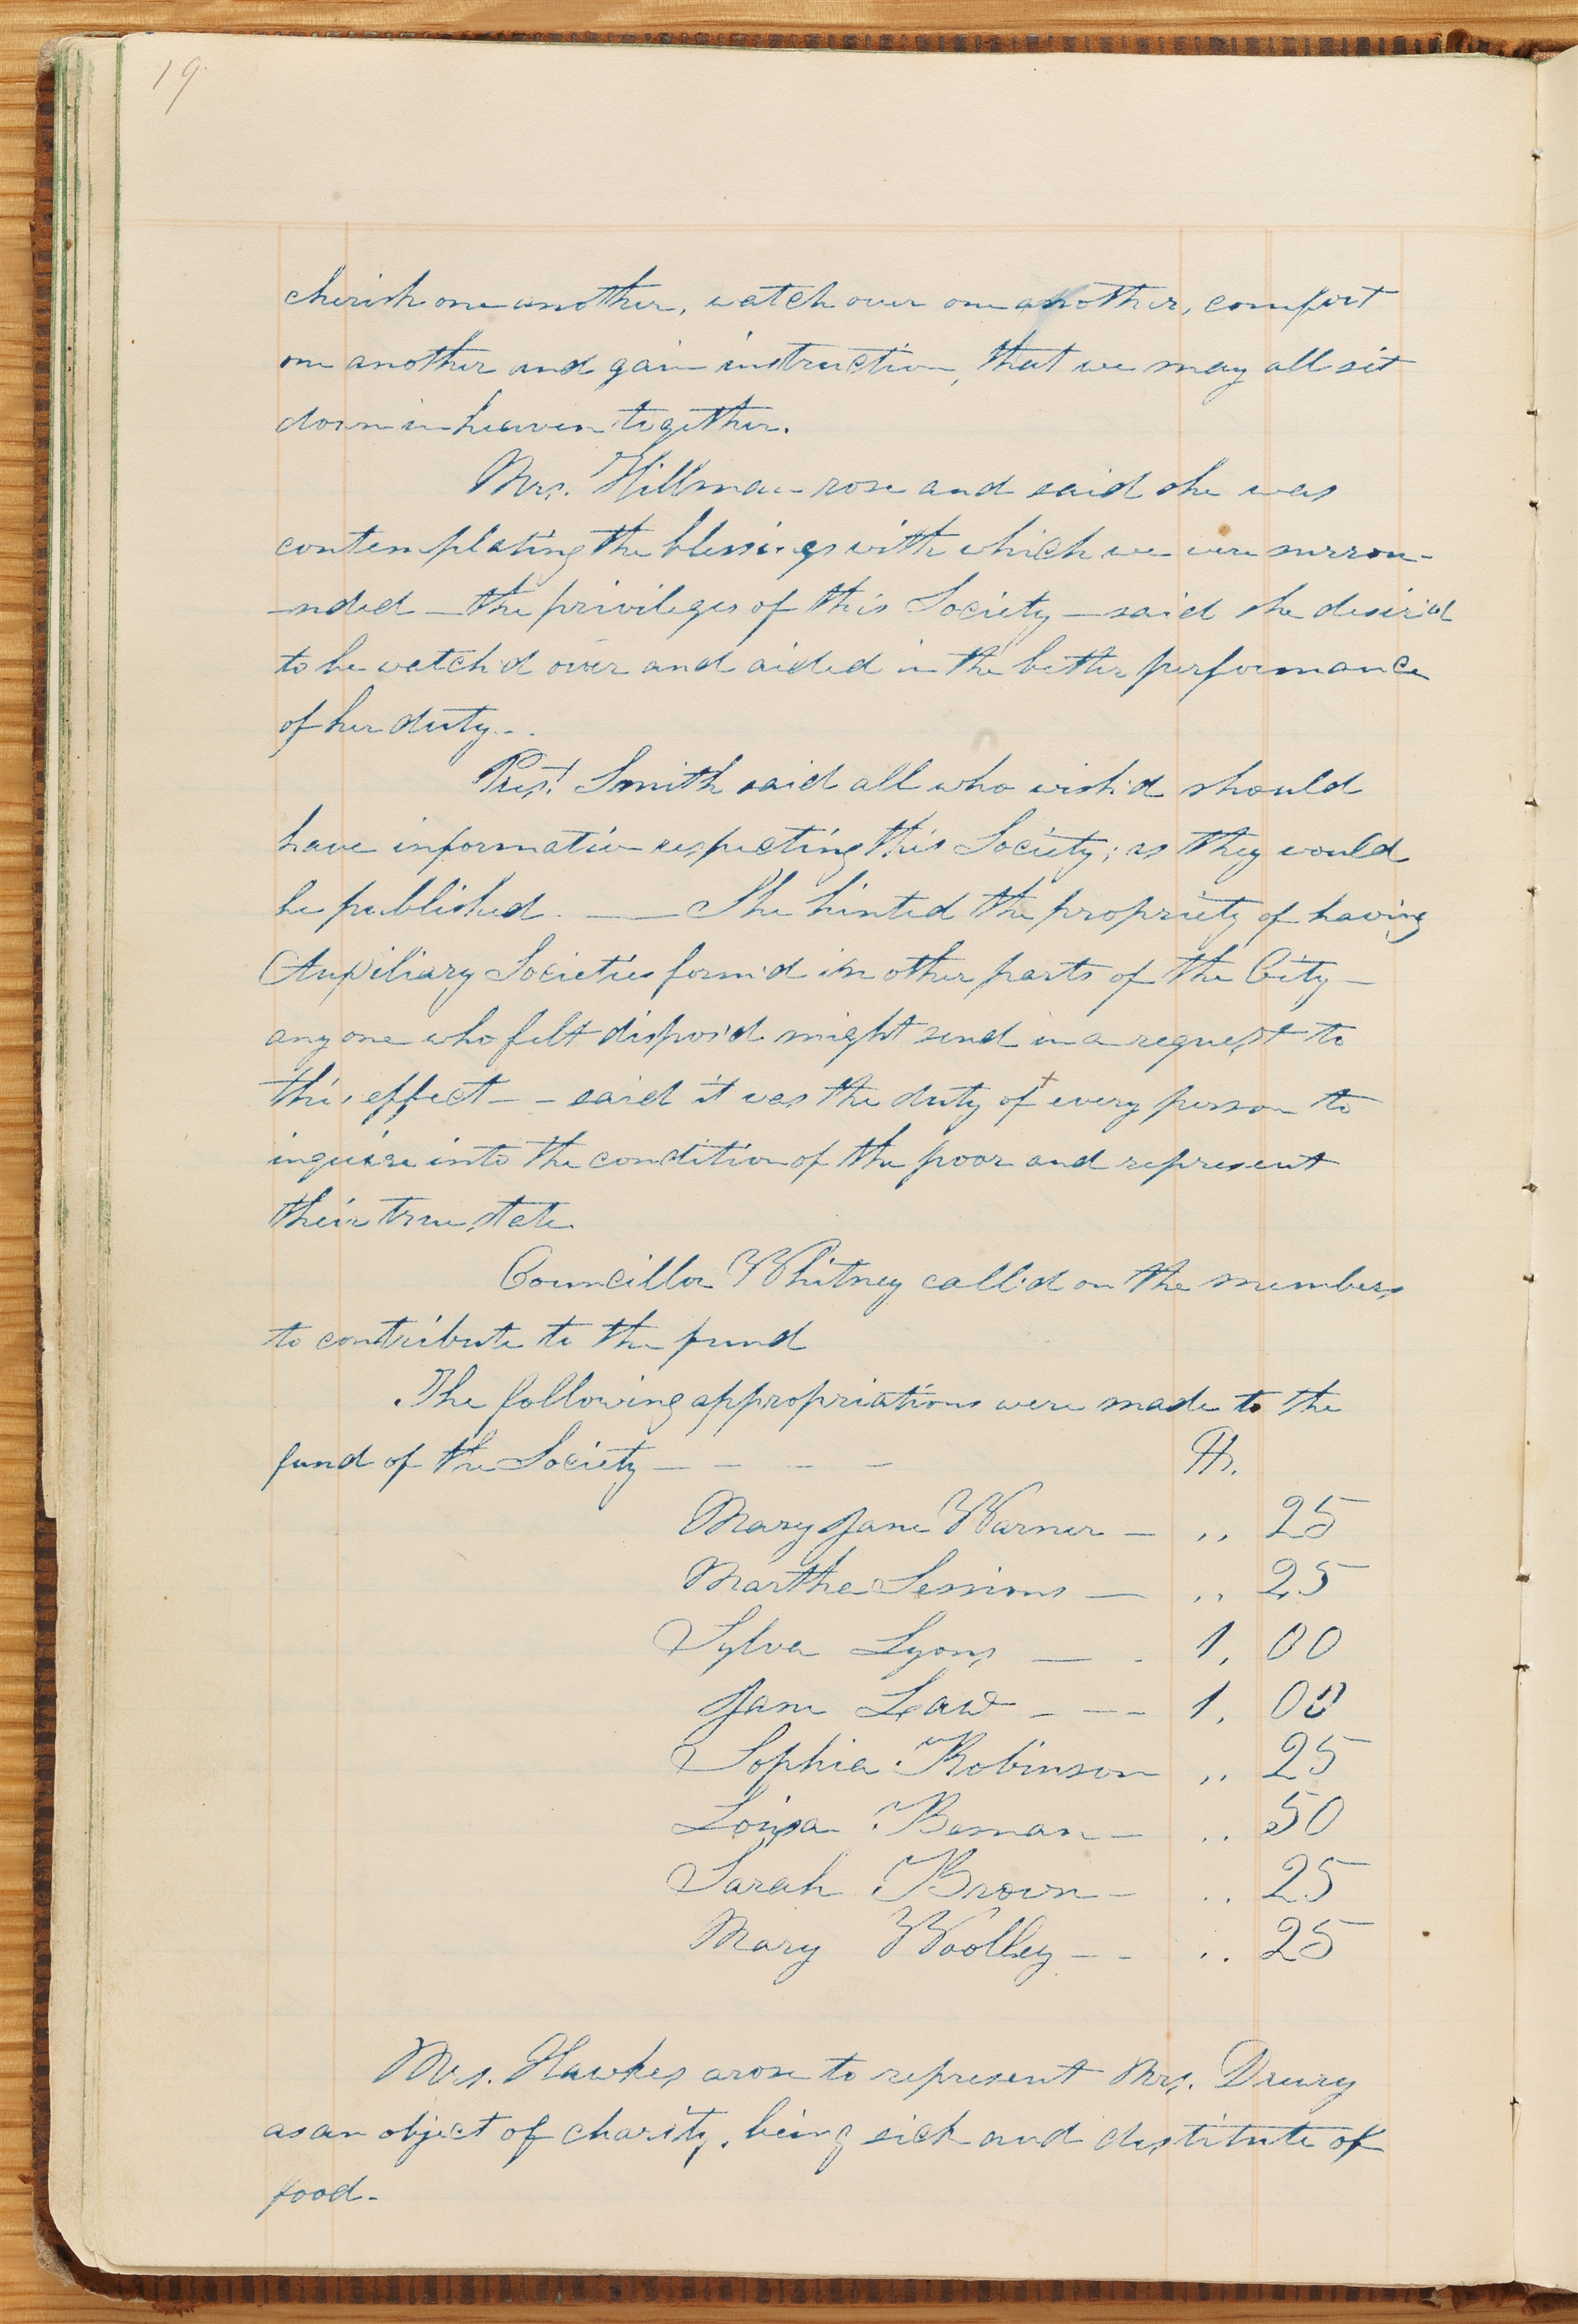 19
cherish one another, watch over one another, comfort
one another and gain instruction, that we may all sit
down in heaven together.
Mrs. Hillman rose and said she was
contemplating the blessings with which we were surrou-
-nded — the privileges of this Society — said she desir'd
to be watch'd over and aided in the better performance
of her duty--
Pres.t Smith said all who wish'd should
have information respecting this Society; as they would
be published. — She hinted the propriety of having
Auxiliary Societies form'd in other parts of the City —
any one who felt dispos'd might send in a request to
this effect - - said it was the duty of + every person to
inquire into the condition of the poor and represent
their true state.
Councillor Whitney call'd on the members
to contribute to the fund
The following appropriations were made to the
fund of the Society — - - -
Mary Jane Warner — ,, 25
Martha Sessions — ,, 25
Sylva Lyons — - 1, 00
Jane Law - - - 1, 00
Sophia Robinson ,, 25
Louisa Beman — ,, 50
Sarah Brown - ,, 25
Mary Woolley - - ,, 25
Mrs. Hawkes arose to represent Mrs. Drury
as an object of charity, being sick and destitute of
food-